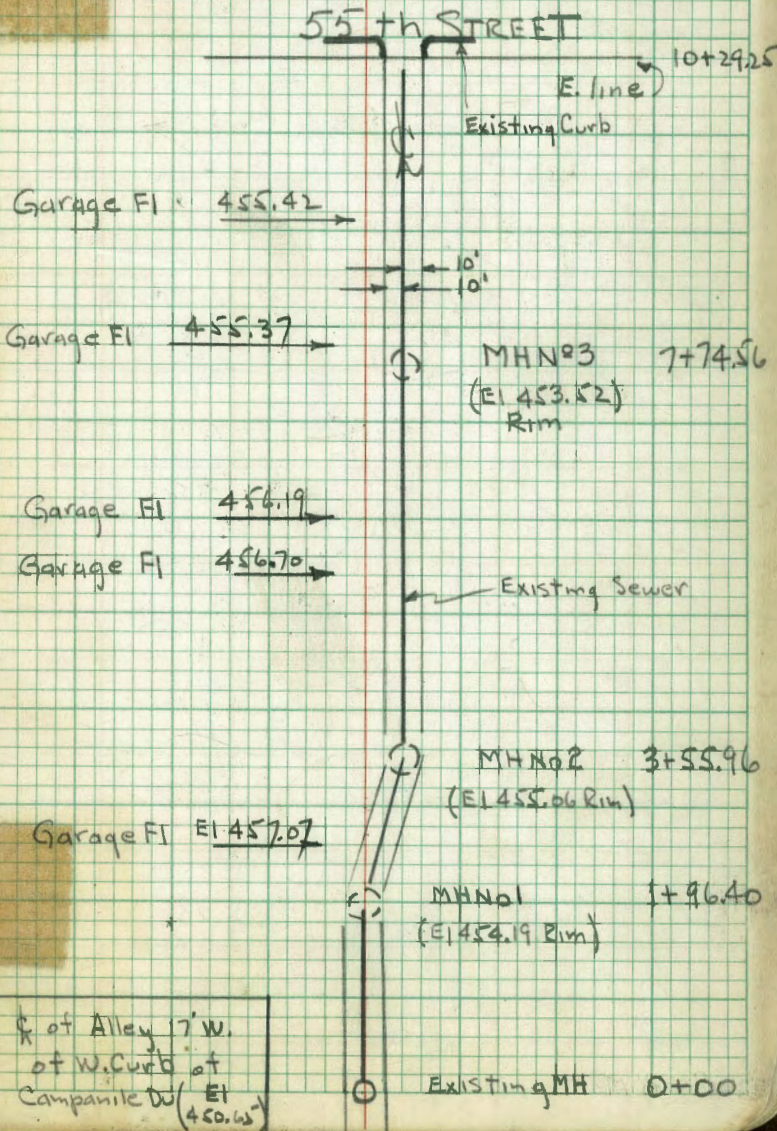 55th STREET
10+29.25
E. line
Existing Curb
Garage Fl 455.42
10'
10'
Garage El 455.37
MH Nº3 7+74.56
(El 453.52)
Rim
Garage El 456.19
Garage Fl 456.70
Existing Sewer
MH No2 3+55.96
(El 455.06 Rim)
Garage Fl El 457.07
MH No1 1+96.40
(El 454.19 Rim)
℄ of Alley 17' W.
of W. Curb of
Campanile Dr (El
450.65)
Existing MH 0+00